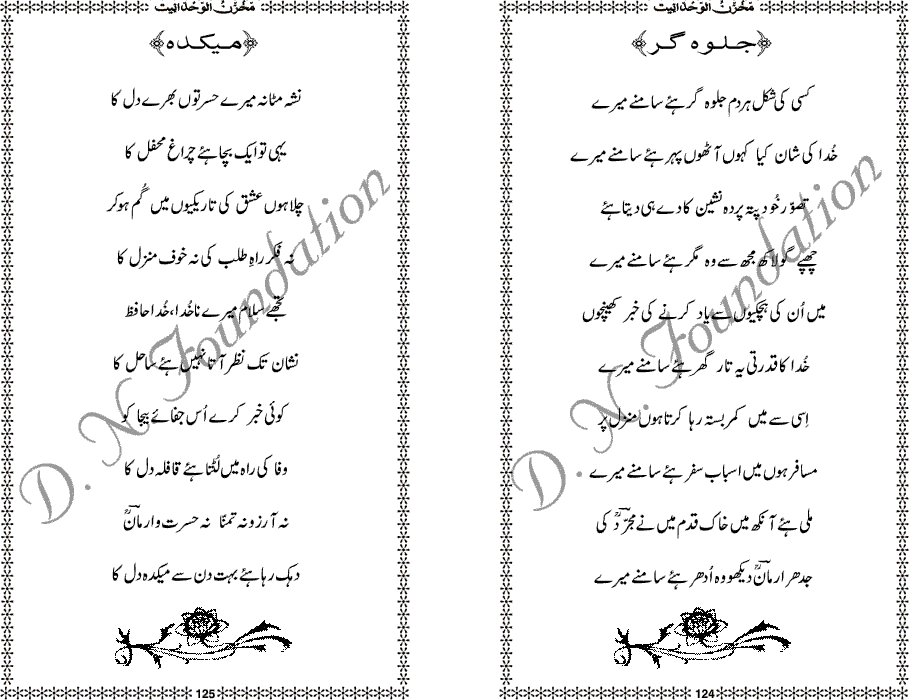 مَخْزنُ الوَحْدَانِیت
﴿جلوہ گر﴾
کسی کی شکل ہر دم جلوہ گر ہئے سامنے میرے
خُدا کی شان کیا کہوں آٹھوں پہر ہئے سامنے میرے
تصوّر خُود پتہ پردہ نشین کا دے ہی دیتا ہئے
چھپے گو لاکھ مجھ سے وہ مگر ہئے سامنے میرے
میں اُن کی ہچکیوں سے یاد کرنے کی خبر کھینچوں
خُدا کا قدرتی یہ تار گھر ہئے سامنے میرے
اِسی سے میں کمر بستہ رہا کرتا ہوں منزل پر
مسافر ہوں میں اسباب سفر ہئے سامنے میرے
ملی ہئے آنکھ میں خاک قدم میں نے مجرّدؔ کی
جدھر ارمانؔ دیکھو وہ اُدھر ہئے سامنے میرے
124
مَخْزنُ الوَحْدَانِیت
﴿میکدہ﴾
نشہ مٹا نہ میرے حسرتوں بھرے دل کا
یہی تو ایک بچا ہئے چراغ محفل کا
چلا ہوں عشق کی تاریکیوں میں گُم ہو کر
نہ فکر راہِ طلب کی نہ خوف منزل کا
تجھے سلام میرے نا خُدا، خُدا حافظ
نشان تک نظر آتا نہیں ہئے ساحل کا
کوئی خبر کرے اُس جفائے بیجا کو
وفا کی راہ میں لُٹتا ہئے قافلہ دل کا
نہ آرزو نہ تمنّا نہ حسرت و ارمانؔ
دہک رہا ہئے بہت دن سے میکدہ دل کا
125
D. N Foundation
D. N Foundation